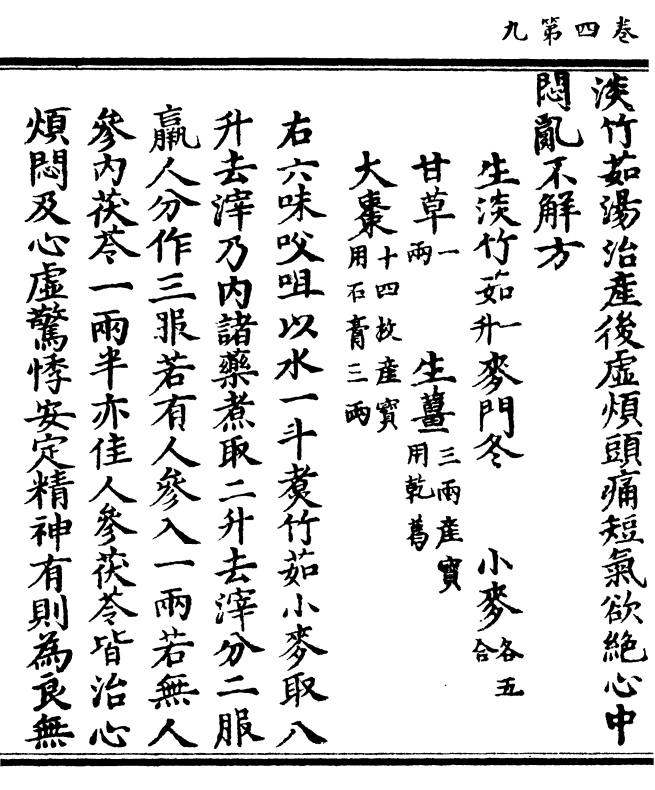 卷四第九
淡竹茹湯治產後虛煩頭痛短氣欲絕心中
悶亂不解方
生淡竹茹一升麥門冬 小麥各五合
甘草一兩 生薑三兩產寶用乾葛
大棗十四枚產寶用石膏三兩
右六味㕮咀以水一斗煑竹茹小麥取八
升去滓乃內諸藥煮取二升去滓分二服
羸人分作三服若有人參入一兩若無人
參內茯苓一兩半亦佳人參茯苓皆治心
煩悶及心虛驚悸安定精神有則為良無